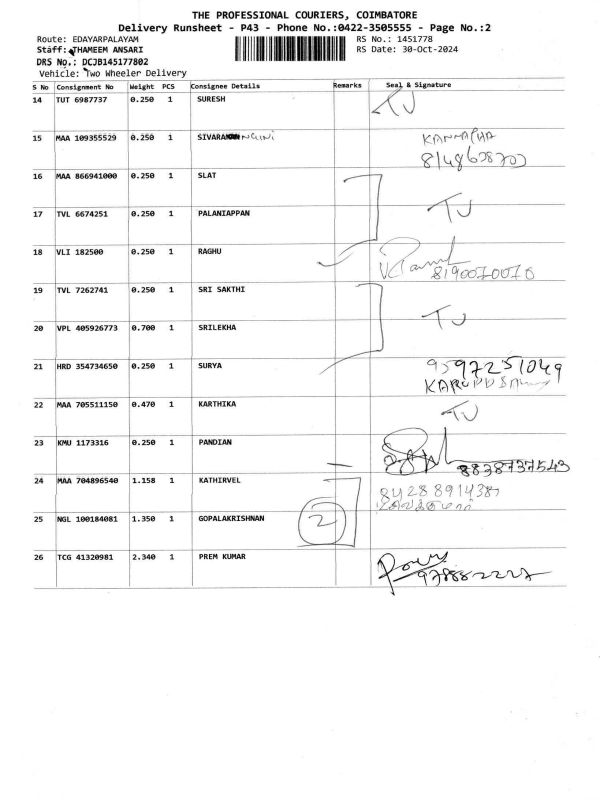 THE PROFESSIONAL COURIERS, COIMBATORE
Delivery Runsheet - P43 - Phone No.:0422-3505555 - Page No.:2
Route: EDAYARPALAYAM
RS No.: 1451778
Staff: THAMEEM ANSARI
RS Date: 30-Oct-2024
DRS No.: DCJB145177802
Vehicle: Two Wheeler Delivery
S No Consignment No Weight PCS Consignee Details Remarks Seal & Signature
14 TUT 6987737 0.250 1 SURESH TJ
15 MAA 109355529 0.250 1 SIVARA
16 MAA 866941000 0.250 1 SLAT
17 TVL 6674251 0.250 1 PALANIAPPAN TJ
18 VLI 182500 0.250 1 RAGHU
8190070076
19 TVL 7262741 0.250 1 SRI SAKTHI
20 VPL 405926773 0.700 1 SRILEKHA TJ
21 HRD 354734650 0.250 1 SURYA
22 MAA 705511150 0.470 1 KARTHIKA TJ
23 KMU 1173316 0.250 1 PANDIAN
8838737543
24 MAA 704896540 1.158 1 KATHIRVEL
25 NGL 100184081 1.350 1 GOPALAKRISHNAN 2
26 TCG 41320981 2.340 1 PREM KUMAR